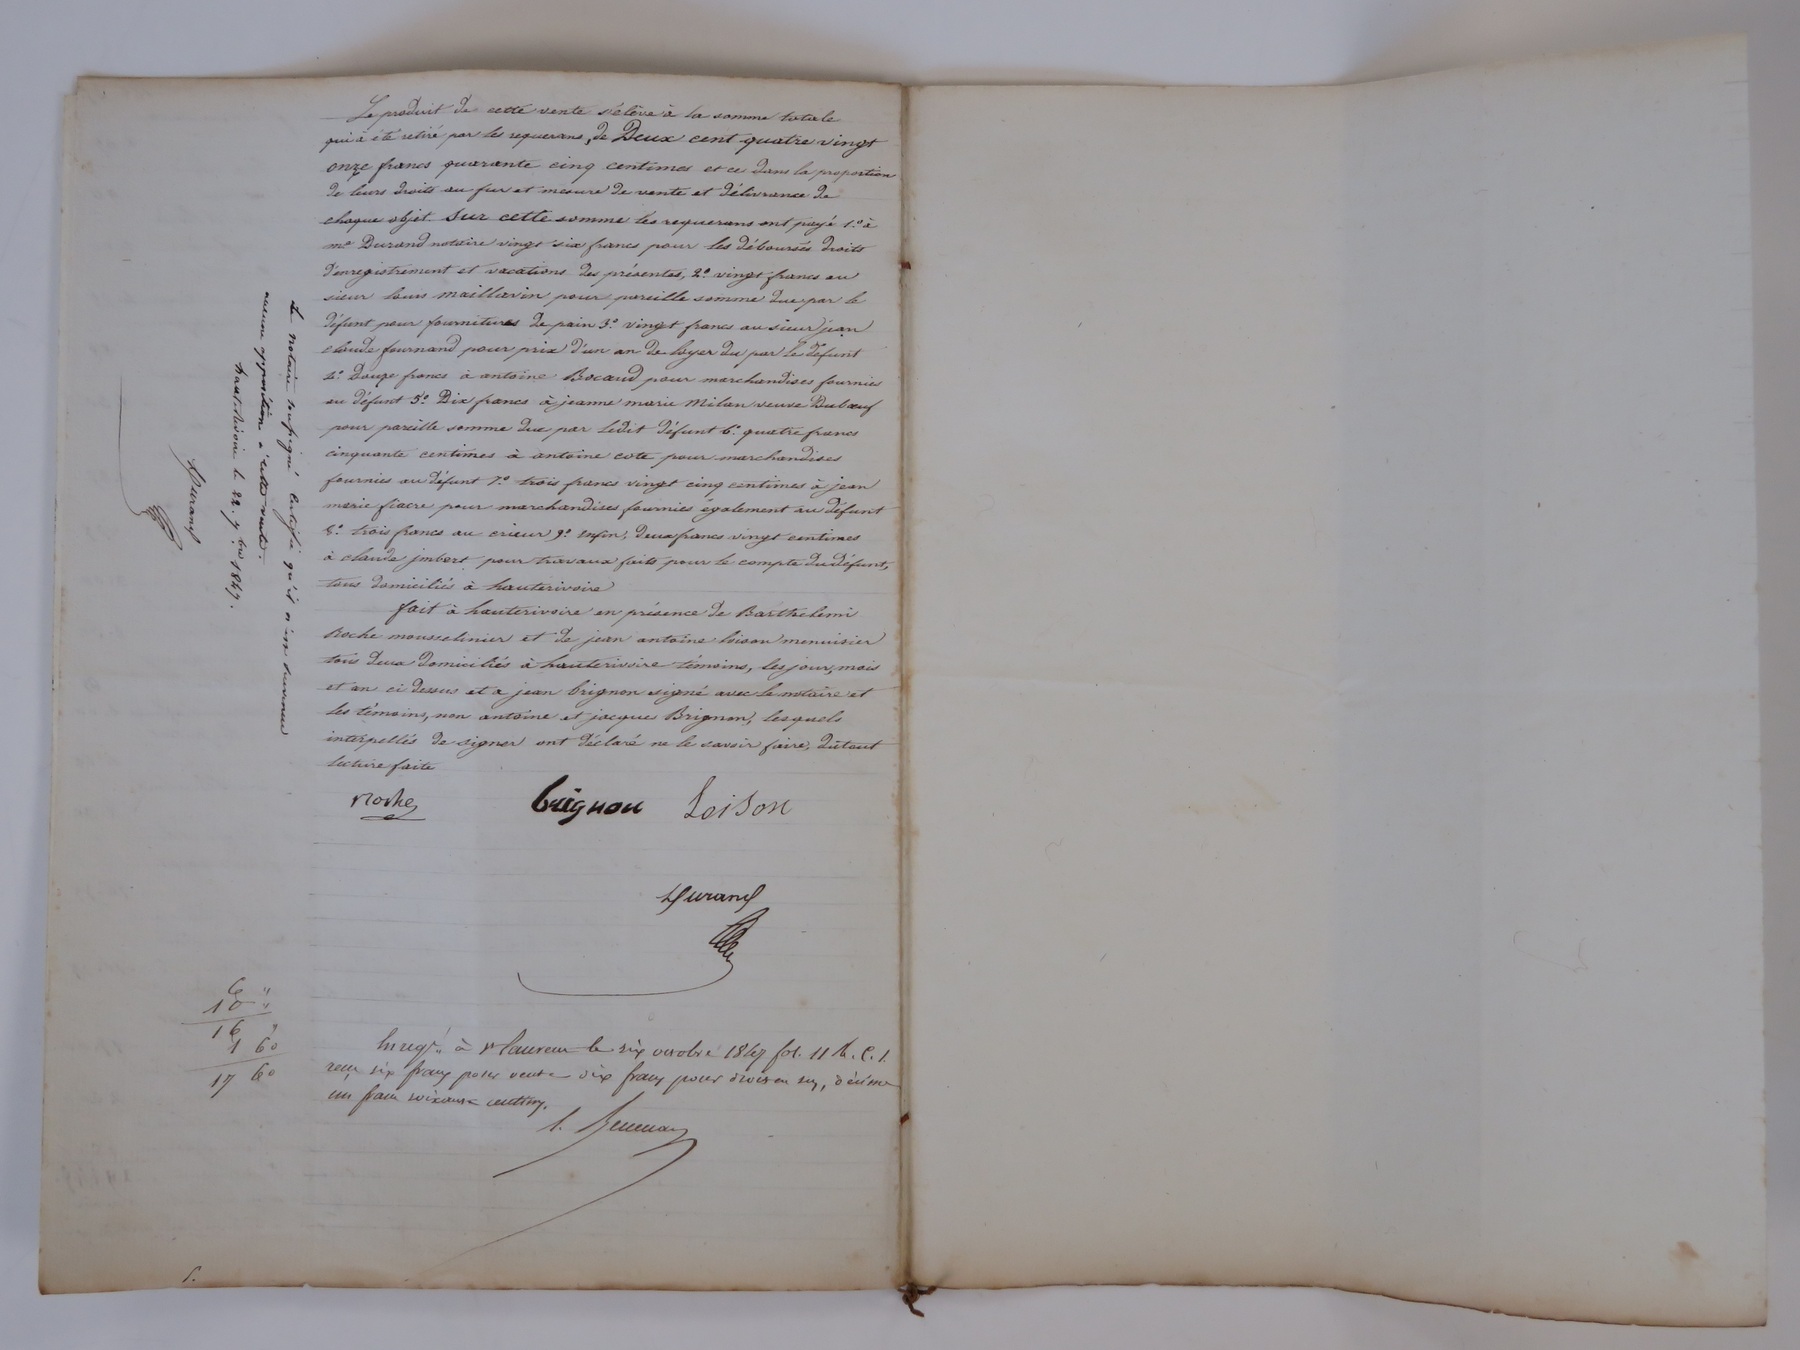 Le produit de cette vente s'élève à la somme totale
qui a été retiré par les requerans, de Deux cent quatre vingt
onze francs quarante cinq centimes et ce dans la proportion
de leurs droits au fur et mesure de vente et délivrance de
chaque objet. Sur cette somme les requerans ont payé 1.º à
me Durand notaire vingt six francs pour les déboursés droits
d'enregistrement et vacations des présentes, 2.º vingt francs au
sieur louis maillavin pour pareille somme due par le
défunt pour fournitures de pain 3.º vingt francs au sieur jean
claude fournand pour prix d'un an de loyer du par le défunt
4.º Douze francs à antoine Bocaud pour marchandises fournies
au défunt 5.º Dix francs à jeanne marie Milan veuve Dubœuf
pour pareille somme due par ledit défunt 6.º quatre francs
cinquante centimes à antoine cote pour marchandises
fournies au défunt 7.º trois francs vingt cinq centimes à jean
marie fiacre pour marchandises fournies également au défunt
8.º trois francs au crieur 9.º enfin, deux francs vingt centimes
à claude jmbert pour travaux faits pour le compte du défunt,
tous domiciliés à hauterivoire
fait à hauterivoire en présence de Barthelemi
Roche mousselinier et de jean antoine loison menuisier
tous deux domiciliés à hauterivoire témoins, les jour, mois
et an ci dessus et a jean brignon signé avec le notaire et
les témoins, non antoine et jacque Brignon, lesquels
interpellés de signer ont déclaré ne le savoir faire, du tout
lecture faite
Roche brignon Loison
Durand
Le notaire soussigné certifie qu'il n'est survenu
aucune opposition à cette vente.
hauterivoire le 22. 7.bre 1847.
Durand
6 "
10 "
16 "
1 60
17 60
Enregé. à St Laurent le six octobre 1847 fol. 11 R. C. 1.
reçu six francs pour vente dix francs pour droit en sus, décime
un franc soixante centimes.